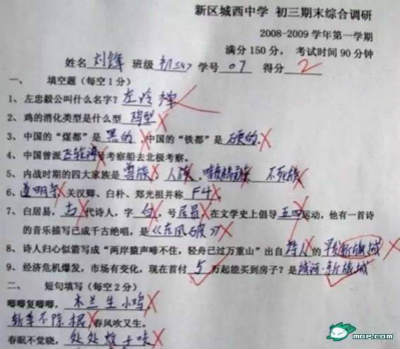 新区城西中学 初三期末综合调研
2008-2009 学年第一学期
满分 150 分，考试时间 90 分钟
姓名 刘辉 班级 初三47 学号 07 得分 2
一、 填空题（每空 1 分）
1、左忠毅公叫什么名字？左冷禅
2、鸡的消化类型是什么型 鸡型
3、中国的“煤都”是 黑的 中国的“铁都”是 硬的。
4、中国曾派 号考察船去北极考察。
5、内战时期的四大家族是 兽族 人族 暗夜精灵族 不死族
6、 关汉卿、白朴、郑光祖并称 F4
7、白居易，古 代诗人，字 白，号 居易 在文学史上倡导 五四 运动，他有一首诗
的音乐描写已成千古绝唱，是《东风破》
8、诗人归心似箭写成“两岸猿声啼不住，轻舟已过万重山”出自 诗人 的
9、经济危机爆发，市场有变化，现在首付 5 万起能买到房子？是
二、 短句填写（每空 2 分）
唧唧复唧唧， 木兰生小鸡
斩草不除根 春风吹又生。
春眠不觉晓， 处处蚊子咬
mop.com